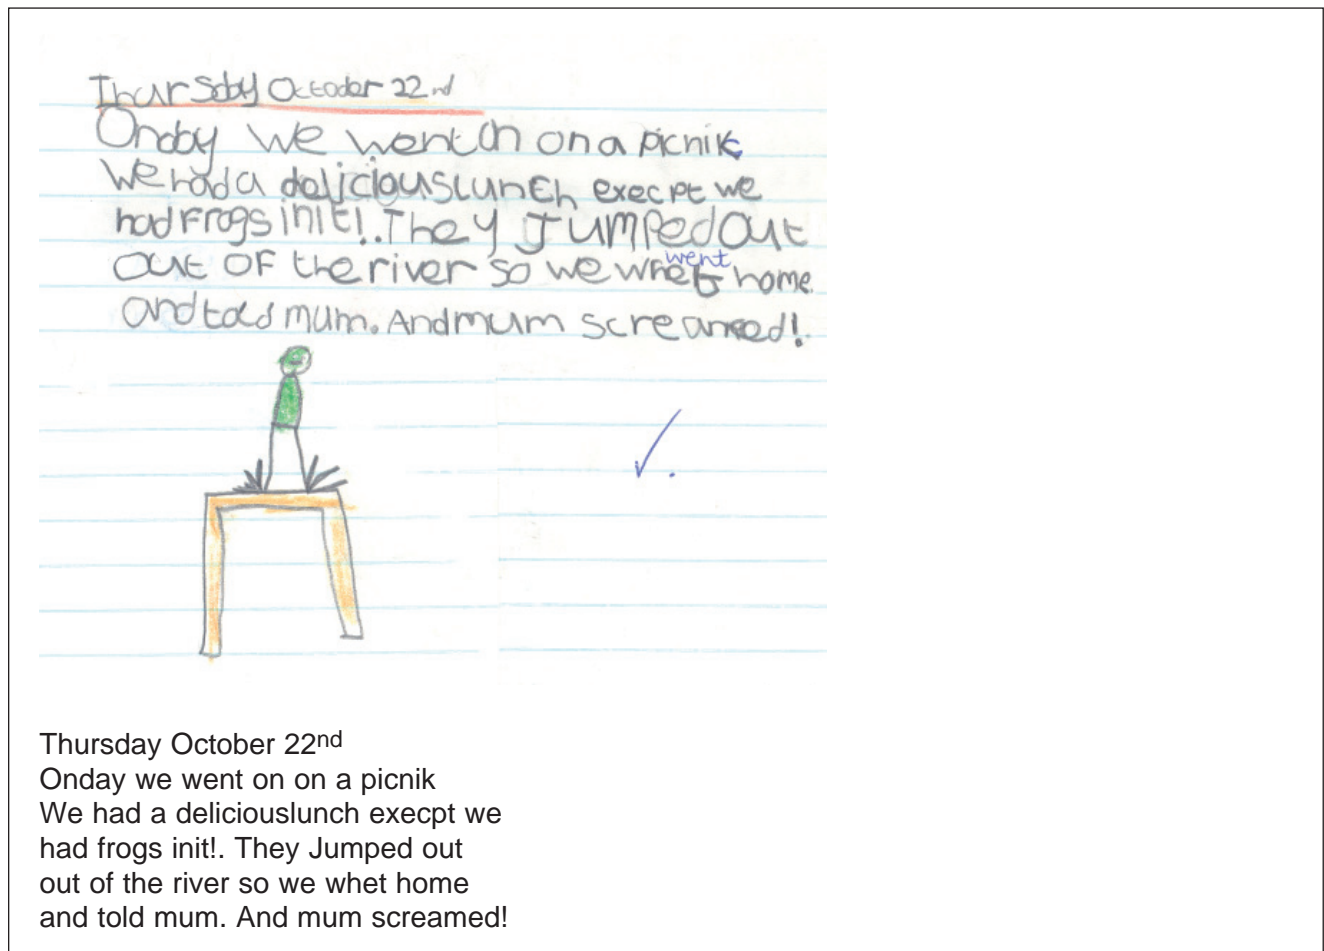 Thursday Octodor 22nd
Onday we went on on a picnik
c
We had a deliciouslunch execpt we
had Frogs init!. They Jumped out
out OF the river so we whet home
went
and told mum. And mum screamed!.
Thursday October 22nd
Onday we went on on a picnik
We had a deliciouslunch execpt we
had frogs init!. They Jumped out
out of the river so we whet home
and told mum. And mum screamed!